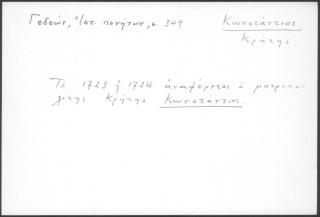 Γεδεών, Ἱστ. πενήτων, σ. 349
Κωνστάντιος
Κρήτης
Τὸ 1723 ἢ 1724 ἀναφέρεται ὁ μητροπο-
λίτης Κρήτης Κωνστάντιος.